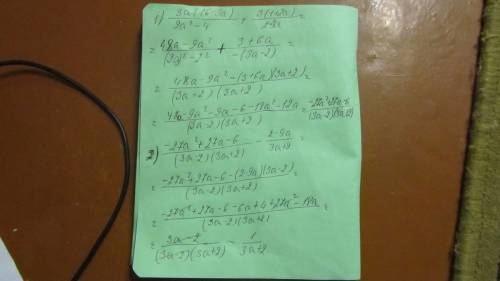 1) 3a(16-3a)/(9a²-4) + 3(1+2a)/(2-3a) =
= (48a-9a²)/((3a)²-2²) + (3+6a)/(-(3a-2)) =
= (48a-9a²-(3+6a)(3a+2))/((3a-2)(3a+2)) =
= (48a-9a²-9a-6-18a²-12a)/((3a-2)(3a+2)) = (-27a²+27a-6)/((3a-2)(3a+2))
2) (-27a²+27a-6)/((3a-2)(3a+2)) - (2-9a)/(3a+2) =
= (-27a²+27a-6-(2-9a)(3a-2))/((3a-2)(3a+2)) =
= (-27a²+27a-6-6a+4+27a²-18a)/((3a-2)(3a+2)) =
= (3a-2)/((3a-2)(3a+2)) = 1/(3a+2)